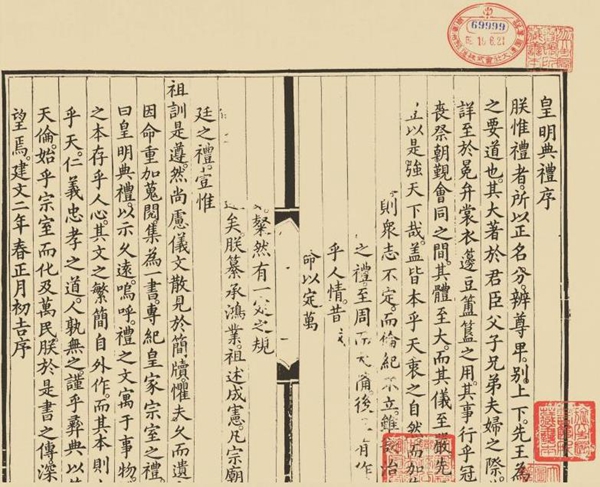 69999
皇明典禮序
朕惟禮者。所以正名分。辨尊卑。別上下。先王為
之要道也。其大著於君臣父子兄弟夫婦之際。
詳至於冕弁裳衣籩豆簠簋之用。其事行乎冠
喪祭朝覲會同之間。其體至大。而其儀至嚴。先
以是強天下哉。盖皆本乎天衷之自然。而加
則衆志不定。而倫紀不立。雖治
之禮。至周而大備。後有作
乎人情。昔
命以定萬
粲然有一之規
矣。朕纂承鴻業。祖述成憲。凡宗廟
廷之禮。壹惟
祖訓是遵。然尚慮儀文散見於簡牘。懼夫久而遺
因命重加蒐閱。集為一書。專紀皇家宗室之禮。
曰皇明典禮。以示久遠。嗚呼。禮之文寓于事物。
之本存乎人心。其文之繁簡自外作。而其本則
乎天。仁義忠孝之道。人孰無之。謹乎彝典以
天倫。始乎宗室而化及萬民。朕於是書之傳深
望焉。建文二年春正月初吉序